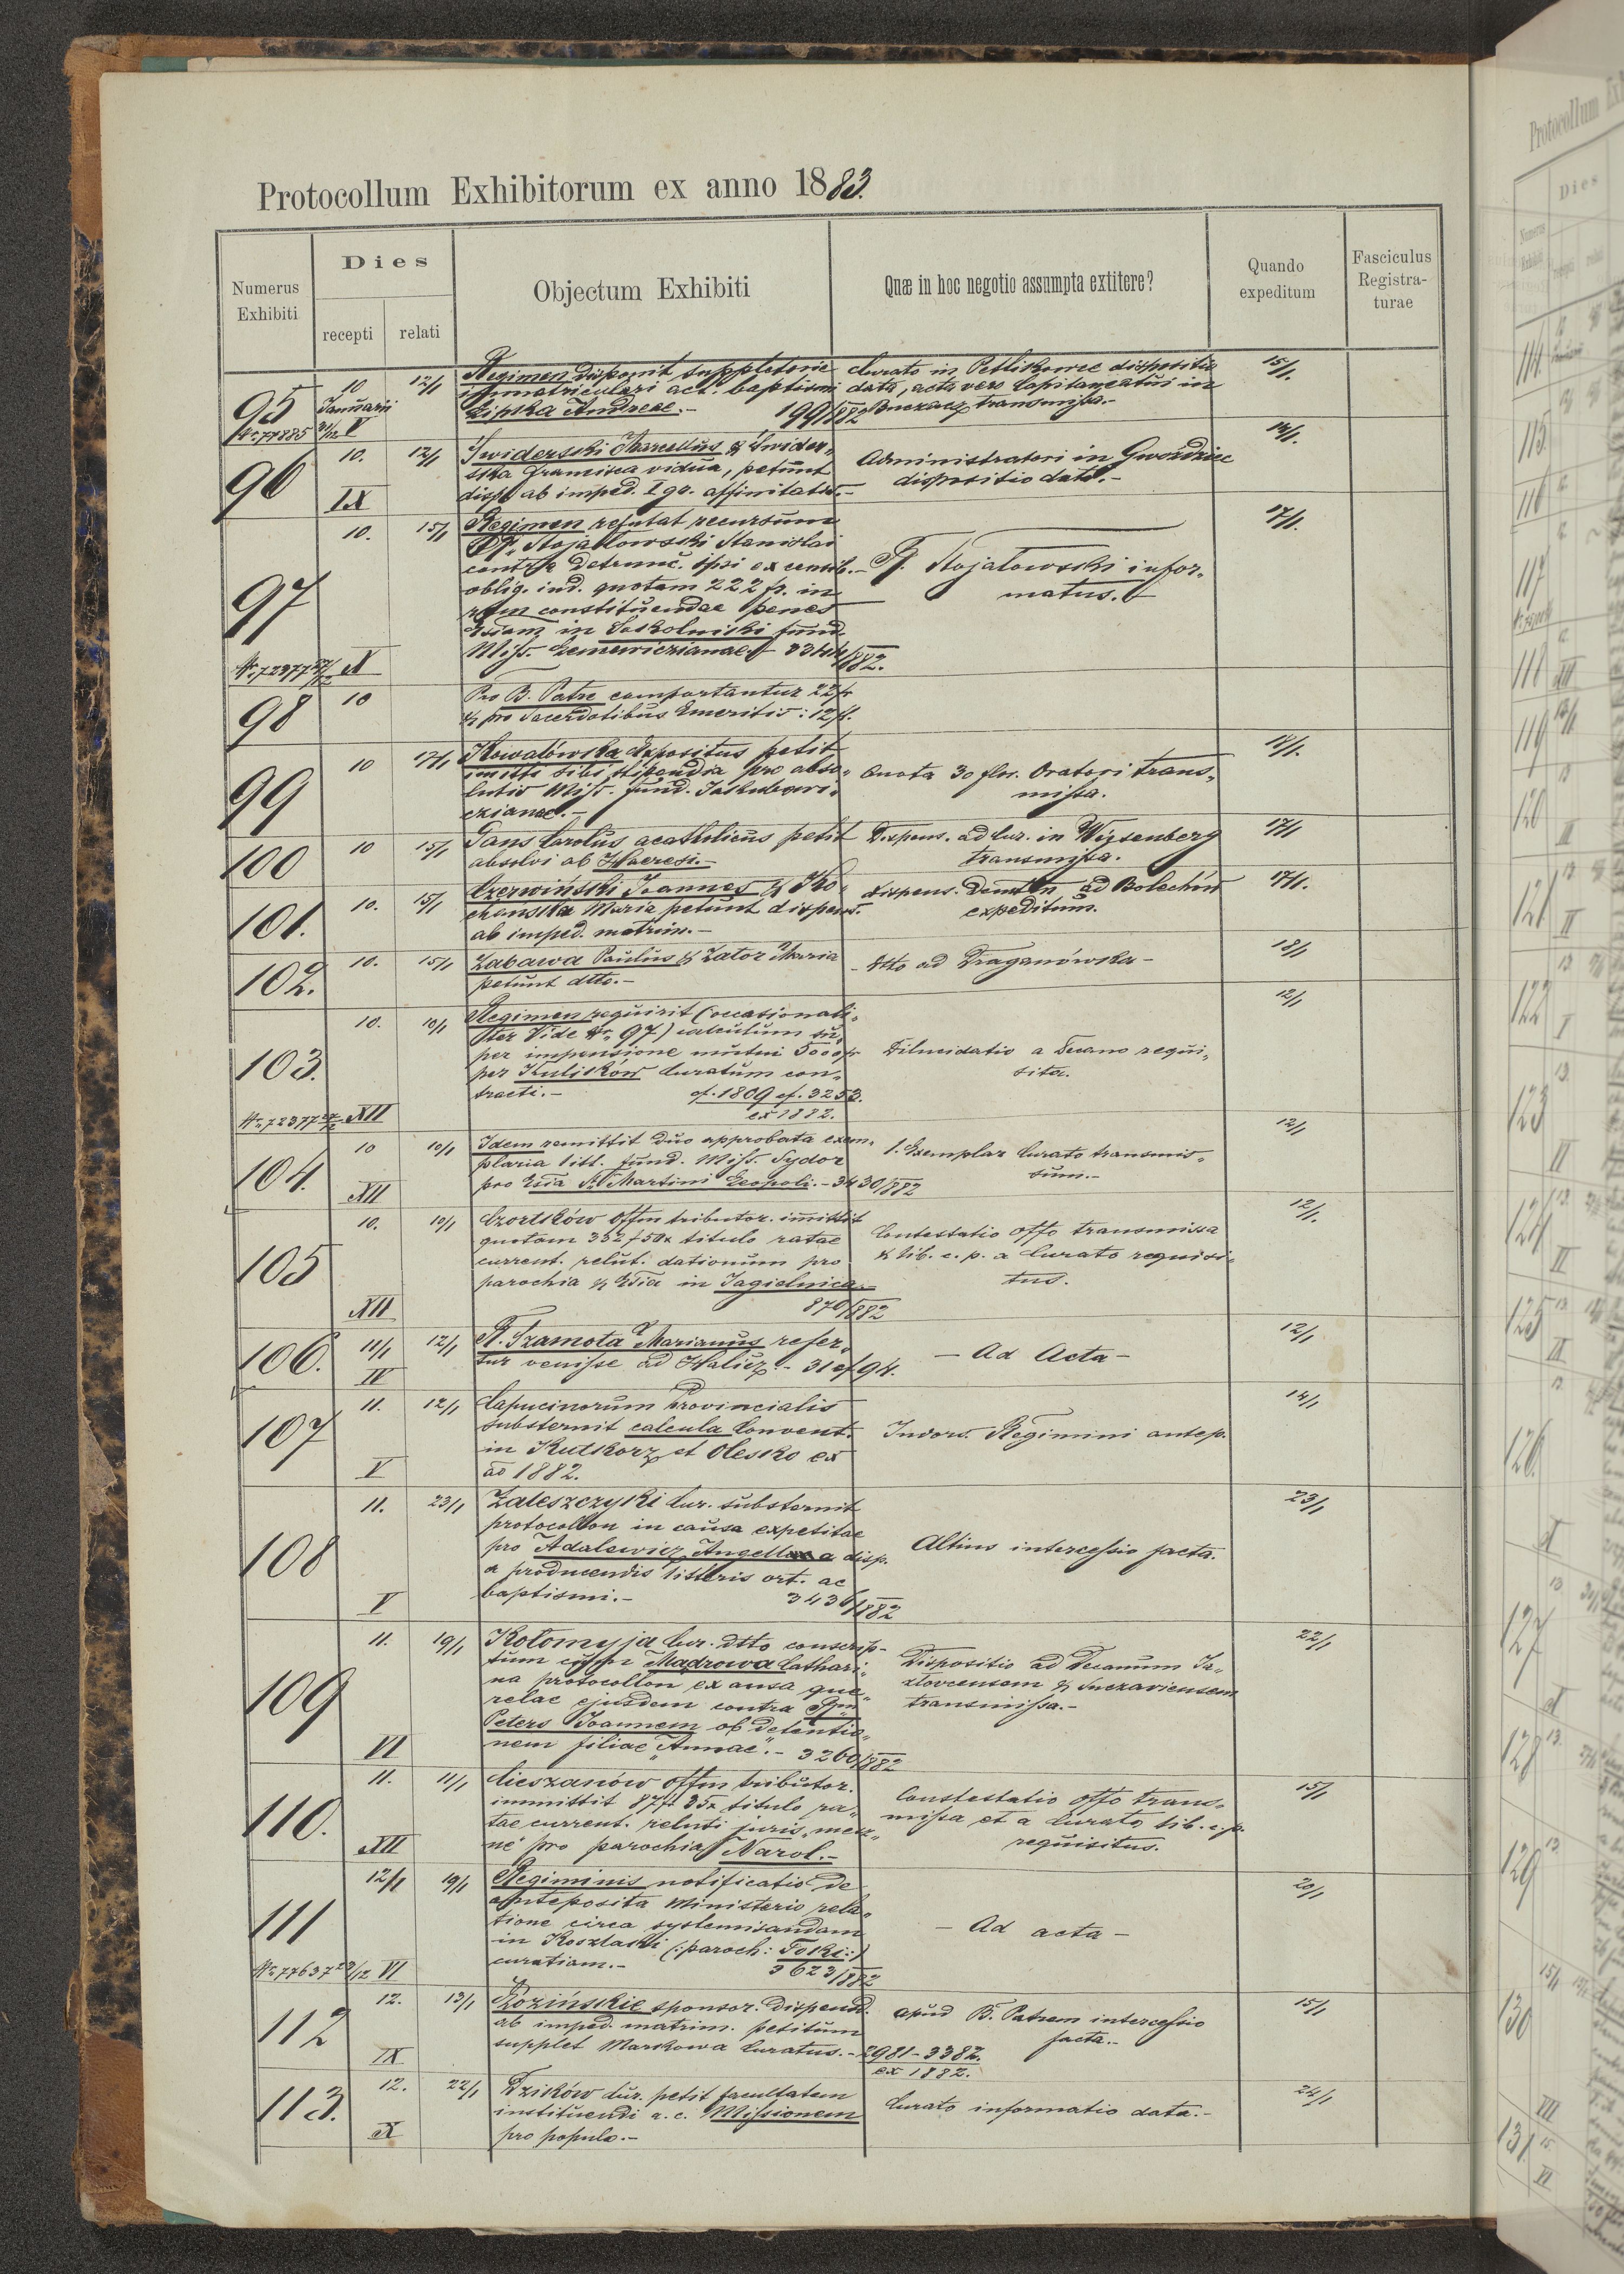 Protocollum Exhibitorum ex anno 1883.
Numerus Exhibiti
Dies
recepti
relati
Objectum Exhibiti
Quæ in hoc negotio assumpta extitere?
Quando expeditum
Fasciculus Registraturae
95
10 Januarii
12/1
Nr. 77885 31/12 V
Regimen disponit suppletorie
immatriculari act. baptismi
Lipska Andreae.- 199/882
Curato in Petlikowce dispositio
data, acta vero Capitaneatui in
Buczacz transmissa.-
15/1.
96
10.
IX
12/1
Swiderski Marcellus & Swider„
ska Francisca vidua, petunt
disp. ab imped. I gr. affinitatis.-
Administratori in Gwoździec
dispositio data.-
14/1.
97
10.
15/1
Nr. 72377 27/12 X
Regimen refutat recursum
Stojałowski Stanislai
contra detrunc. ipsi ex censib.
oblig. ind. quotam 222 fr. in
rem constituendae penes
Esiam in Sokolniki fund.
Miss. 3344/882.
Stojałowski infor„
matus.
17/1.
98
10
Pro B. Patre comportantur 22 fr
& pro Sacerdotibus Emeritis: 12 fl.
99
10
17/1
Kowalówka Expositus petit
imitti sibi stipendia pro abso„
lutis Miss. fund.
czianae.-
Quota 30 flor. Oratori trans„
missa.
18/1.
100
10
15/1
Gans Carolus acatholicus petit
absolvi ab Haeresi.-
Dispens. ad Cur. in Wizenberg
transmissa.
17/1
101.
10.
15/1
Czerwiński Joannes & Ko„
chańska Maria petunt dispens.
ab imped. matrim.-
dispens. ad Bolechów
expeditum.
17/1.
102.
10.
15/1
Zabawa Paulus & Zator Maria
petunt dtto.-
- dtto ad Draganówka -
18/1
103.
10.
10/1
Nr. 72377 27/12 XII
Regimen requirit (occasionali„
ter Vide Nr. 97) calculum su„
per impensione mutui 5000 fr
per Kulików Curatum con„
tracti.- cf. 1809 cf. 3253.
ex 1882.
Dilucidatio a Decano requi„
sita.
12/1
104.
10
XII
10/1
Idem remittit duo approbata exem„
plaria litt. fund. Miss. Sydor
pro Esia S. Martini Leopoli.- 3430/882
1. Exemplar Curato transmis„
sum.-
12/1
105
10.
XII
10/1
Czortków Offm tributor. imittit
quotam 332 f 50x titulo ratae
current. relut. dationum pro
parochia & Esia in Jagielnica.-
870/882
Contestatio Offo transmissa
& lib. e. p. a Curato requisi„
tus.
12/1.
106.
11/1
IV
12/1
R. Szamota Marianus refer„
tur venisse ad Halicz.- 31 cf 94.
- Ad Acta -
12/1
107
11.
V
12/1
Capucinorum Provincialis
substernit calcula Convent.
in Kutkorz et Olesko ex
ao 1882.
Indors. Regimini antep.
14/1
108
11.
V
23/1
Zaleszczyki Cur. substernit
protocollon in causa expetitae
pro Adalewicz Angella disp.
a producendis litteris ort. ac
baptismi.- 3436/882
Altius intercessio facta.
23/1
109
11.
VI
19/1
Kołomyja Cur. dtto conscrip-
tum cum Mądrowa Cathari„
na protocollon ex ansa que„
relae ejusdem contra
Peters Joannem ob detentio„
nem filiae „Annae".- 3260/882
Dispositio ad Decanum Ja„
złovcensem & Suczaviensem
transmissa.-
22/1
110.
11.
XII
11/1
Cieszanów Offm tributor.
immittit 87 f 35x titulo ra„
tae current. reluti juris „mesz„
ne" pro parochia Narol.-
Constestatio Offo trans„
missa et a Curato lib. e. p.
requisitus.
15/1
111
12/1
19/1
Nr. 77637 29/12 VI
Regiminis notificatio de
anteposita Ministerio rela„
tione circa systemisandam
in Koszlaki (:paroch: Toki:)
curatiam.- 3623/882
- Ad acta -
20/1
112
12.
IX
13/1
Rozińskie sponsor. dispend.
ab imped. matrim. petitum
supplet Markowa Curatus.- 2981-3382.
ex 1882.
apud B. Patrem intercessio
facta.-
15/1
113.
12.
X
22/1
Dzików Cur. petit facultatem
instituendi a. c. Missionem
pro populo.-
Curato informatio data.-
24/1
Protocollum
Dies
114
115
116
117
118
119
120
121
122
123
124
125
126
127
128
129
130
131